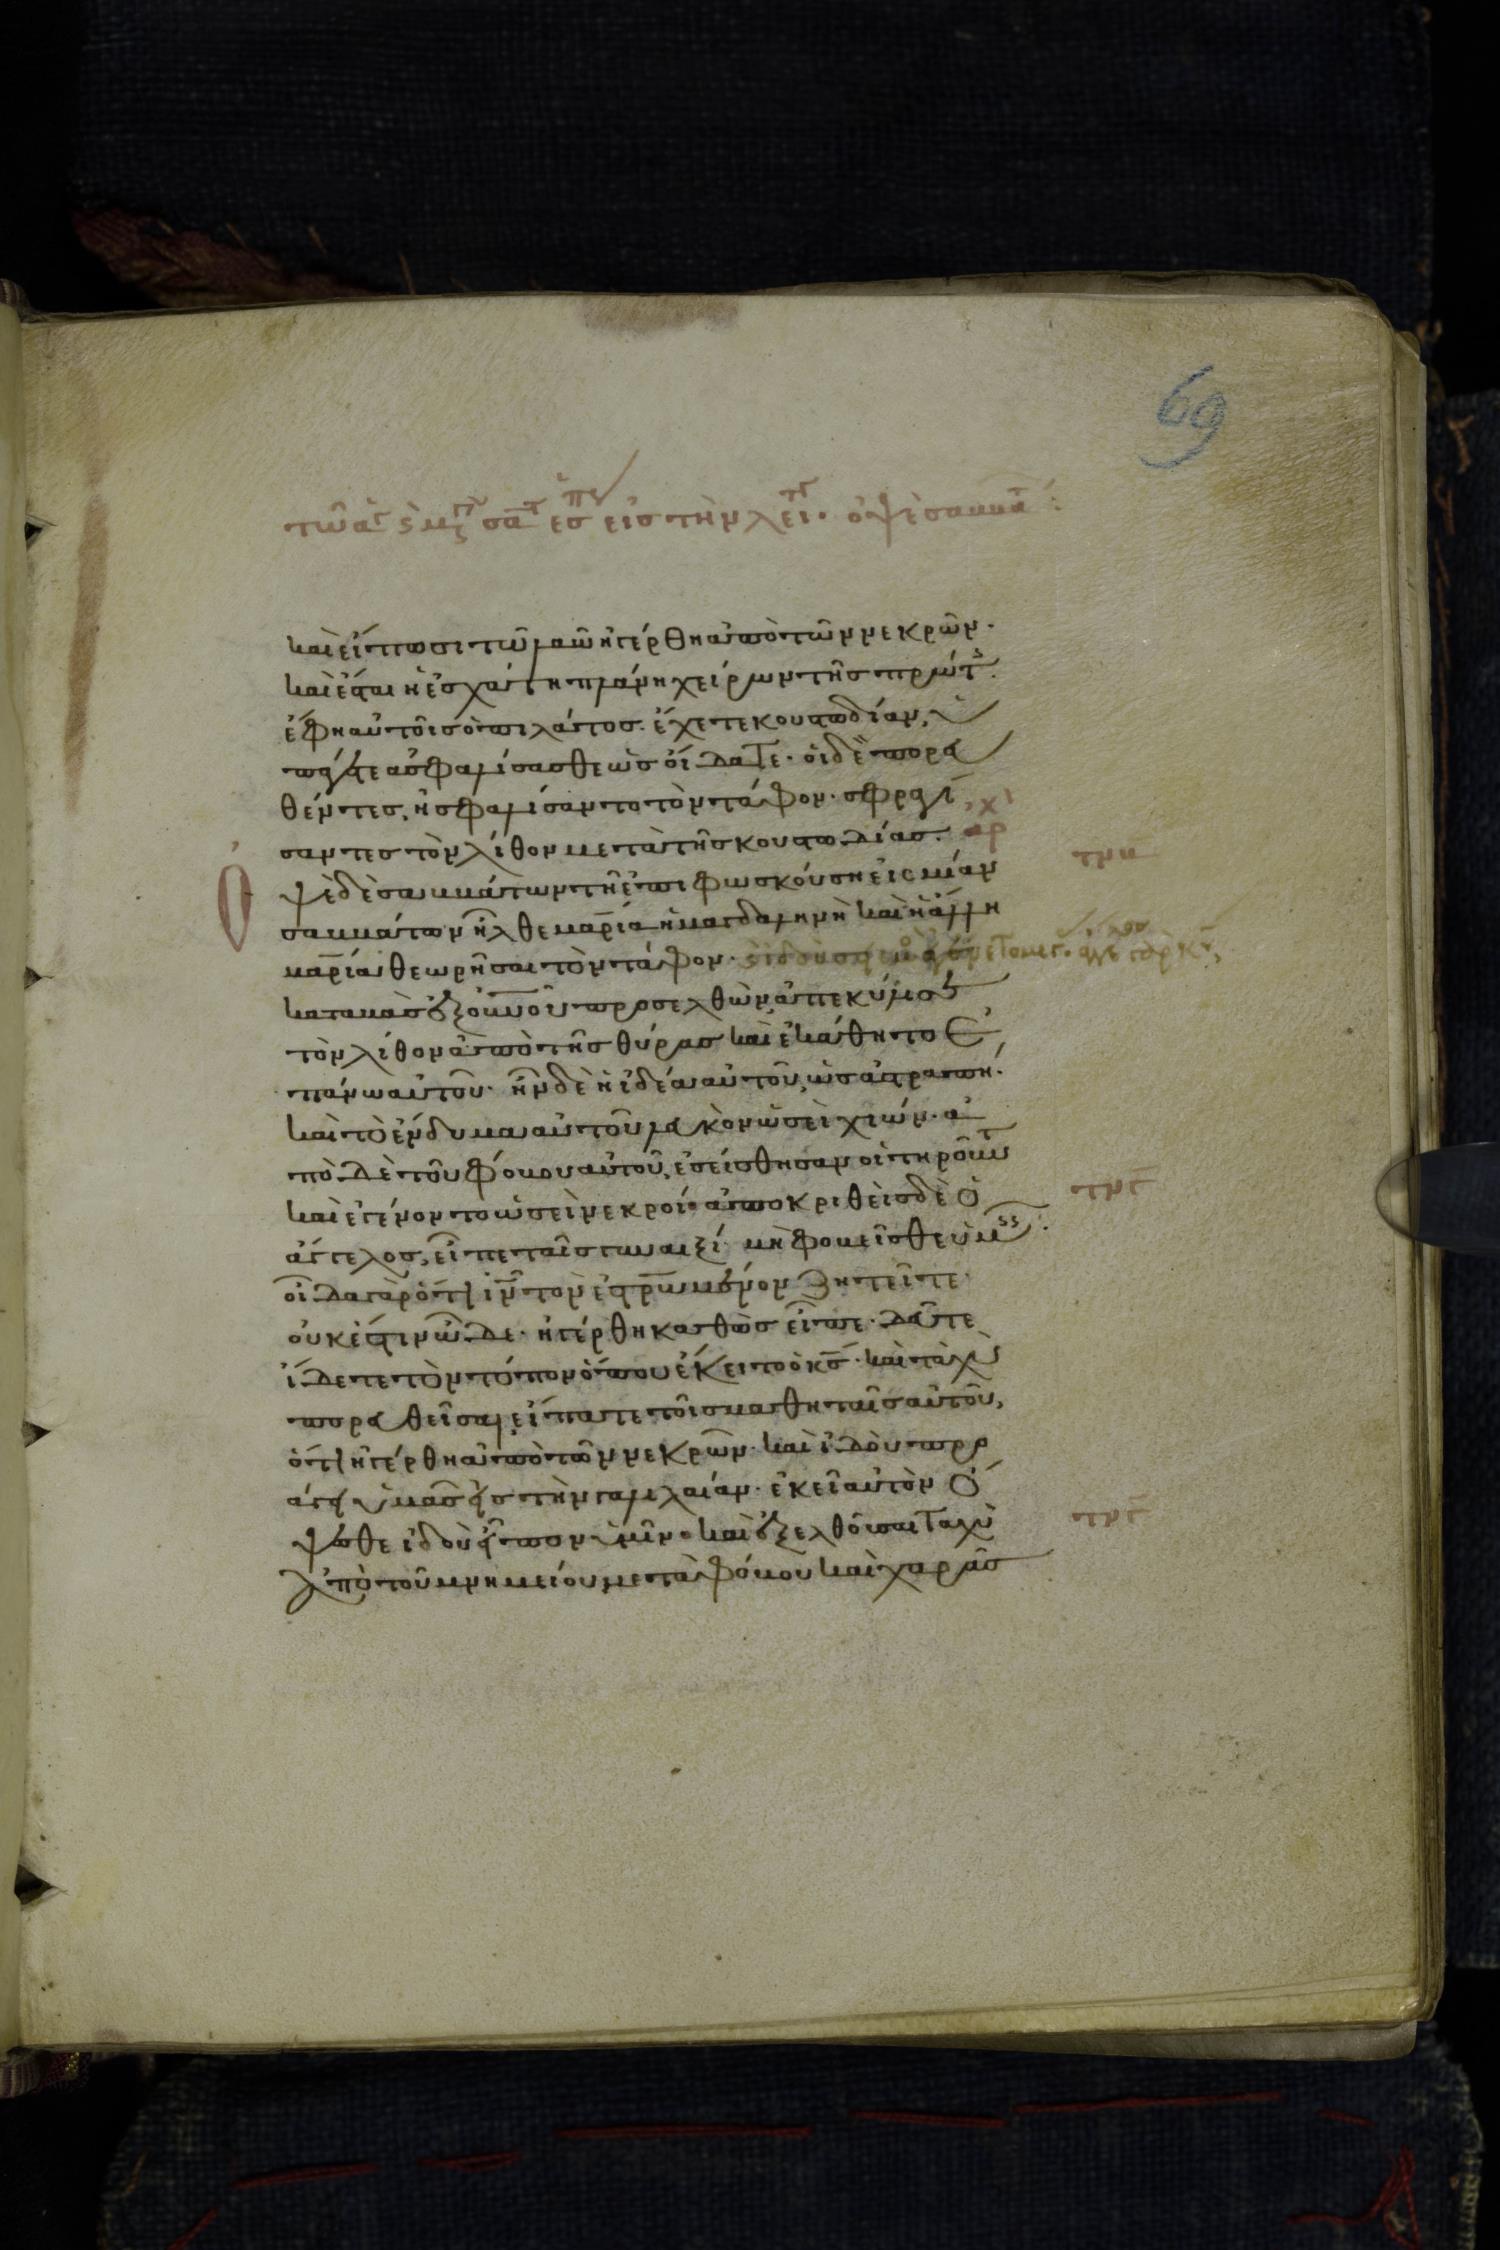 69
τῶ ἁγ σαβ ἑσπ εἰς τὴν λει· ὀψὲ σαββα
καὶ εἴπωσι τῶ λαῶ ἠγέρθη ἀπὸ τῶν νεκρῶν·
καὶ ἔσται ἡ ἐσχάτη πλάνη χείρων τῆς πρώτ
ἔφη αὐτοῖς ὁ πιλάτος· ἔχετε κουστωδίαν, ὑ
πάγετε ἀσφαλίσασθε ὡς οἴδατε· οἱ δὲ πορευ
θέντες, ἠσφαλίσαντο τὸν τάφον· σφραγί
σαντες τὸν λίθον μετὰ τῆς κουστωδίας· ἀρχ
Ὀψὲ δὲ σαββάτων τῆ ἐπιφωσκούση εἰς μίαν τνβ
σαββάτων ἦλθε μαρία ἡ μαγδαληνὴ καὶ ἡ ἄλλη
μαρία θεωρῆσαι τὸν τάφον· καὶ ἰδοὺ σεισμὸς ἐγένετο μεγ· ἄγγε γὰρ κυ
καταβὰς ἐξ οὐνοῦ προσελθὼν ἀπεκύλισε
τὸν λίθον ἀπὸ τῆς θύρας καὶ ἐκάθητο ἐ
πάνω αὐτοῦ· ἦν δὲ ἡ ἰδέα αὐτοῦ, ὡς ἀστραπή·
καὶ τὸ ἔνδυμα αὐτοῦ λευκὸν ὡσεὶ χιών· ἀ
πὸ δὲ τοῦ φόβου αὐτοῦ, ἐσείσθησαν οἱ τηροῦντ
καὶ ἐγένοντο ὡσεὶ νεκροί· ἀποκριθεὶς δὲ ὁ τνγ
ἄγγελος, εἶπε ταῖς γυναιξί· μὴ φοβεῖσθε ὑμεῖς·
οἶδα γὰρ ὅτι ἰν τὸν ἐστρωμένον ζητεῖτε·
οὐκ ἔστιν ὧδε· ἠγέρθη καθὼς εἶπε· δεῦτε
ἴδετε τὸν τόπον ὅπου ἔκειτο ὁ κς· καὶ ταχὺ
πορευθεῖσαι, εἴπατε τοῖς μαθηταῖς αὐτοῦ,
ὅτι ἠγέρθη ἀπὸ τῶν νεκρῶν· καὶ ἰδοὺ προ
άγει ὑμᾶς εἰς τὴν γαλιλαίαν· ἐκεῖ αὐτὸν ὄ
ψεσθε ἰδοὺ εἶπον ὑμῖν· καὶ ἐξελθοῦσαι ταχὺ τνς
ἀπὸ τοῦ μνημείου μετὰ φόβου καὶ χαρᾶς